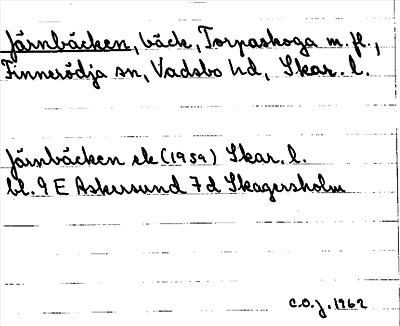 Järnbäcken, bäck, Torpaskoga m.fl.,
Finnerödja sn, Vadsbo hd, Skar. l.
Järnbäcken ek (1959) Skar. l.
bl. 9 E Askersund 7 d Skagersholm
C.O.J. 1962